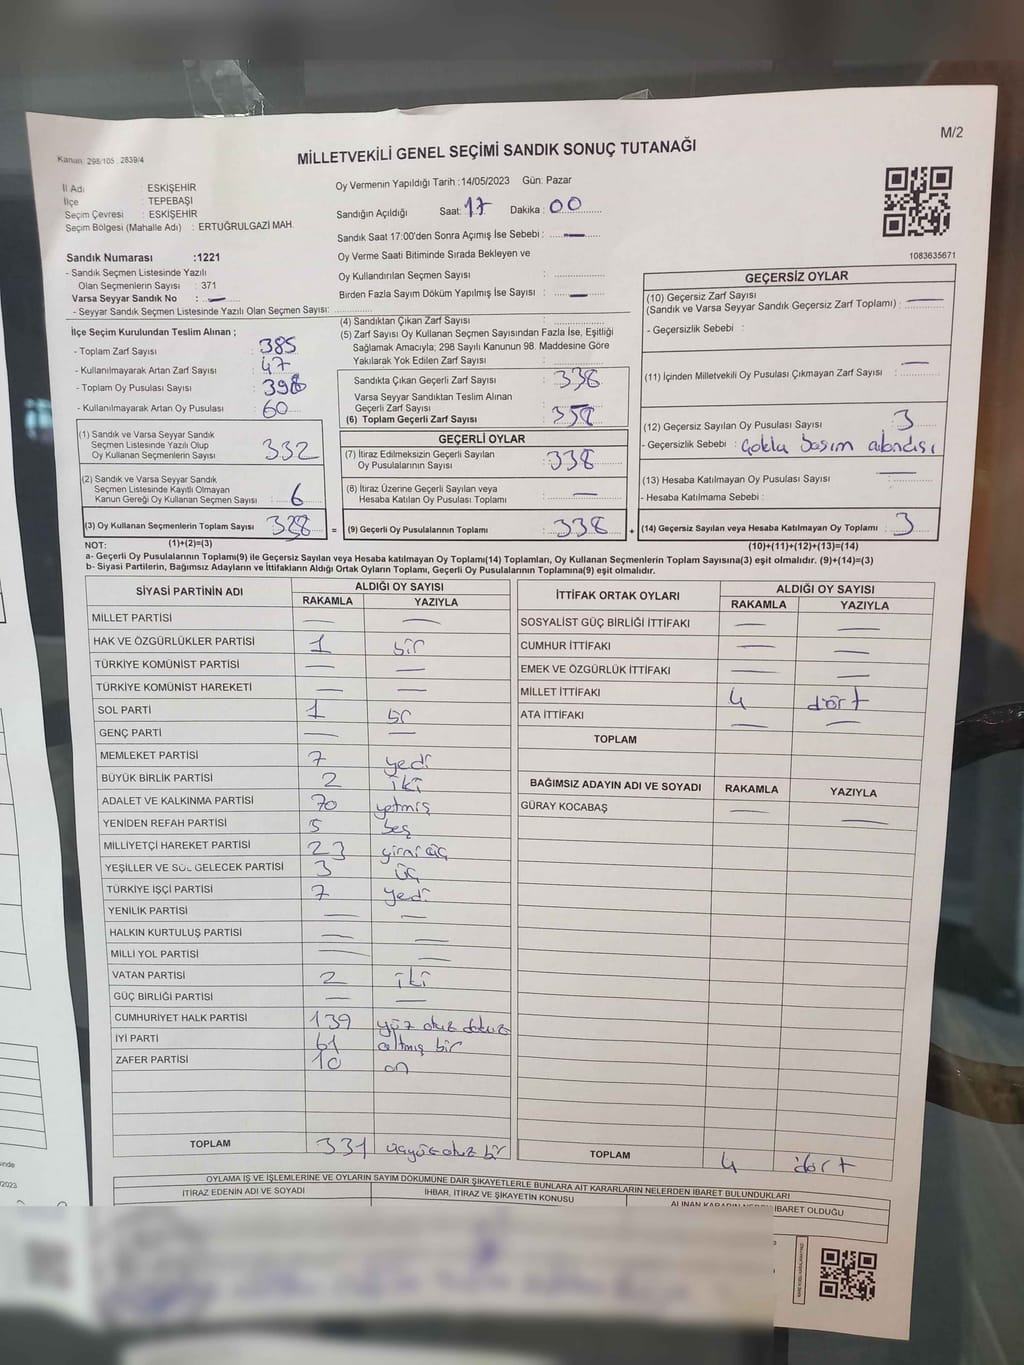 M/2
Kanun: 298/105 , 2839/4
MİLLETVEKİLİ GENEL SEÇİMİ SANDIK SONUÇ TUTANAĞI
İl Adı : ESKİŞEHİR
İlçe : TEPEBAŞI
Seçim Çevresi : ESKİŞEHİR
Seçim Bölgesi (Mahalle Adı) : ERTUĞRULGAZİ MAH.
Oy Vermenin Yapıldığı Tarih :14/05/2023 Gün: Pazar
Sandığın Açıldığı Saat: 17 Dakika : 00
Sandık Saat 17:00'den Sonra Açımış İse Sebebi : —
Oy Verme Saati Bitiminde Sırada Bekleyen ve
Oy Kullandırılan Seçmen Sayısı :
Birden Fazla Sayım Döküm Yapılmış İse Sayısı : —
1083635671
Sandık Numarası :1221
- Sandık Seçmen Listesinde Yazılı
Olan Seçmenlerin Sayısı : 371
Varsa Seyyar Sandık No : —
- Seyyar Sandık Seçmen Listesinde Yazılı Olan Seçmen Sayısı:
İlçe Seçim Kurulundan Teslim Alınan ;
- Toplam Zarf Sayısı : 385
- Kullanılmayarak Artan Zarf Sayısı : 47
- Toplam Oy Pusulası Sayısı : 398
- Kullanılmayarak Artan Oy Pusulası : 60
(1) Sandık ve Varsa Seyyar Sandık
Seçmen Listesinde Yazılı Olup
Oy Kullanan Seçmenlerin Sayısı : 332
(2) Sandık ve Varsa Seyyar Sandık
Seçmen Listesinde Kayıtlı Olmayan
Kanun Gereği Oy Kullanan Seçmen Sayısı : 6
(3) Oy Kullanan Seçmenlerin Toplam Sayısı : 338
(4) Sandıktan Çıkan Zarf Sayısı :
(5) Zarf Sayısı Oy Kullanan Seçmen Sayısından Fazla İse, Eşitliği
Sağlamak Amacıyla; 298 Sayılı Kanunun 98. Maddesine Göre
Yakılarak Yok Edilen Zarf Sayısı :
Sandıkta Çıkan Geçerli Zarf Sayısı : 338
Varsa Seyyar Sandıktan Teslim Alınan
Geçerli Zarf Sayısı :
(6) Toplam Geçerli Zarf Sayısı : 338
GEÇERLİ OYLAR
(7) İtiraz Edilmeksizin Geçerli Sayılan
Oy Pusulalarının Sayısı : 338
(8) İtiraz Üzerine Geçerli Sayılan veya
Hesaba Katılan Oy Pusulası Toplamı : —
= (9) Geçerli Oy Pusulalarının Toplamı : 338 +
GEÇERSİZ OYLAR
(10) Geçersiz Zarf Sayısı
(Sandık ve Varsa Seyyar Sandık Geçersiz Zarf Toplamı) : —
- Geçersizlik Sebebi :
(11) İçinden Milletvekili Oy Pusulası Çıkmayan Zarf Sayısı : —
(12) Geçersiz Sayılan Oy Pusulası Sayısı : 3
- Geçersizlik Sebebi : Çoklu basım
(13) Hesaba Katılmayan Oy Pusulası Sayısı : —
- Hesaba Katılmama Sebebi :
(14) Geçersiz Sayılan veya Hesaba Katılmayan Oy Toplamı : 3
NOT: (1)+(2)=(3) (10)+(11)+(12)+(13)=(14)
a- Geçerli Oy Pusulalarının Toplamı(9) ile Geçersiz Sayılan veya Hesaba katılmayan Oy Toplamı(14) Toplamları, Oy Kullanan Seçmenlerin Toplam Sayısına(3) eşit olmalıdır. (9)+(14)=(3)
b- Siyasi Partilerin, Bağımsız Adayların ve İttifakların Aldığı Ortak Oyların Toplamı, Geçerli Oy Pusulalarının Toplamına(9) eşit olmalıdır.
SİYASİ PARTİNİN ADI ALDIĞI OY SAYISI
RAKAMLA YAZIYLA
MİLLET PARTİSİ — —
HAK VE ÖZGÜRLÜKLER PARTİSİ 1 bir
TÜRKİYE KOMÜNİST PARTİSİ — —
TÜRKİYE KOMÜNİST HAREKETİ — —
SOL PARTİ 1 bir
GENÇ PARTİ — —
MEMLEKET PARTİSİ 7 yedi
BÜYÜK BİRLİK PARTİSİ 2 iki
ADALET VE KALKINMA PARTİSİ 70 yetmiş
YENİDEN REFAH PARTİSİ 5 beş
MİLLİYETÇİ HAREKET PARTİSİ 23 yirmi üç
YEŞİLLER VE SOL GELECEK PARTİSİ 3 üç
TÜRKİYE İŞÇİ PARTİSİ 7 yedi
YENİLİK PARTİSİ — —
HALKIN KURTULUŞ PARTİSİ — —
MİLLİ YOL PARTİSİ — —
VATAN PARTİSİ 2 iki
GÜÇ BİRLİĞİ PARTİSİ — —
CUMHURİYET HALK PARTİSİ 139 yüz otuz dokuz
İYİ PARTİ 61 altmış bir
ZAFER PARTİSİ 10 on
TOPLAM 331 üçyüz otuz bir
İTTİFAK ORTAK OYLARI ALDIĞI OY SAYISI
RAKAMLA YAZIYLA
SOSYALİST GÜÇ BİRLİĞİ İTTİFAKI — —
CUMHUR İTTİFAKI — —
EMEK VE ÖZGÜRLÜK İTTİFAKI — —
MİLLET İTTİFAKI 4 dört
ATA İTTİFAKI — —
TOPLAM
BAĞIMSIZ ADAYIN ADI VE SOYADI RAKAMLA YAZIYLA
GÜRAY KOCABAŞ — —
TOPLAM 4 dört
OYLAMA İŞ VE İŞLEMLERİNE VE OYLARIN SAYIM DÖKÜMÜNE DAİR ŞİKAYETLERLE BUNLARA AİT KARARLARIN NELERDEN İBARET BULUNDUKLARI
İTİRAZ EDENİN ADI VE SOYADI İHBAR, İTİRAZ VE ŞİKAYETİN KONUSU ALINAN KARARIN NEDEN İBARET OLDUĞU